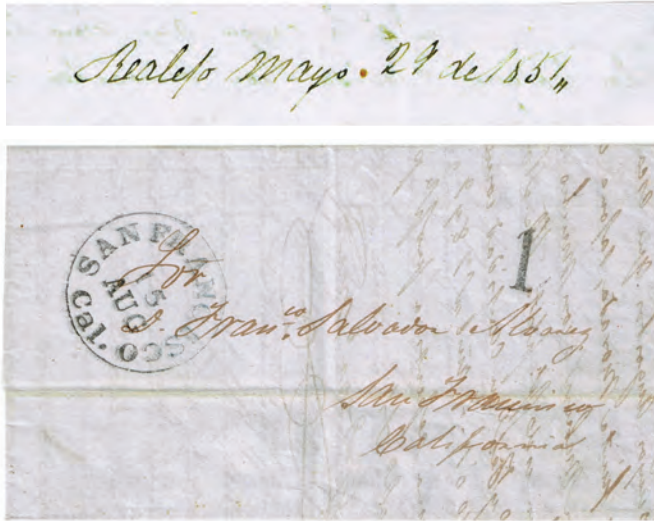 Realejo Mayo. 29 de 1851,,
SAN FRANCISCO
15
AUG
Cal.
1
Sor
D. Franco. Salvador Alvarez
San Francisco
California